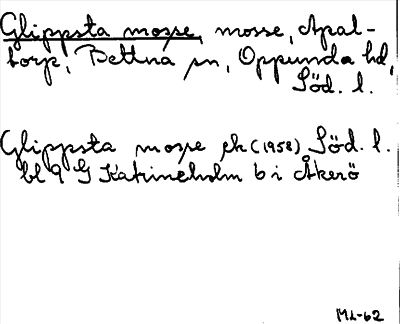 Glippsta mosse, mosse, Apal-
torp, Bettna sn, Oppunda hd,
Söd. l.
Glippsta mosse ek (1958) Söd. l.
bl 9 G Katrineholm 6 i Åkerö
ML-62